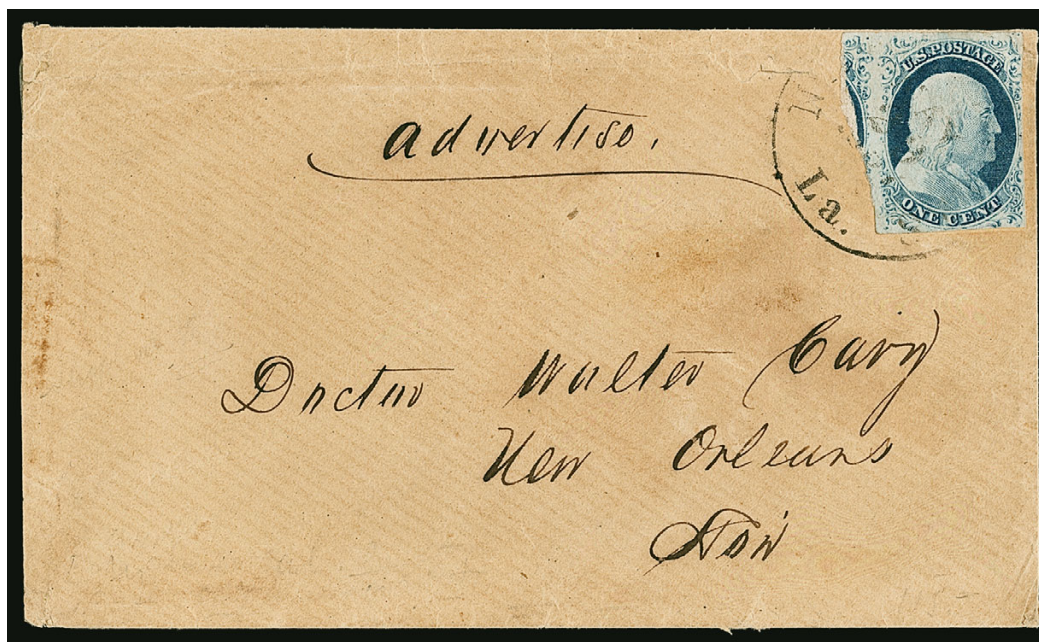 U.S. POSTAGE
ONE CENT
N
La.
advertise.
Doctor Walter Cary
New Orleans